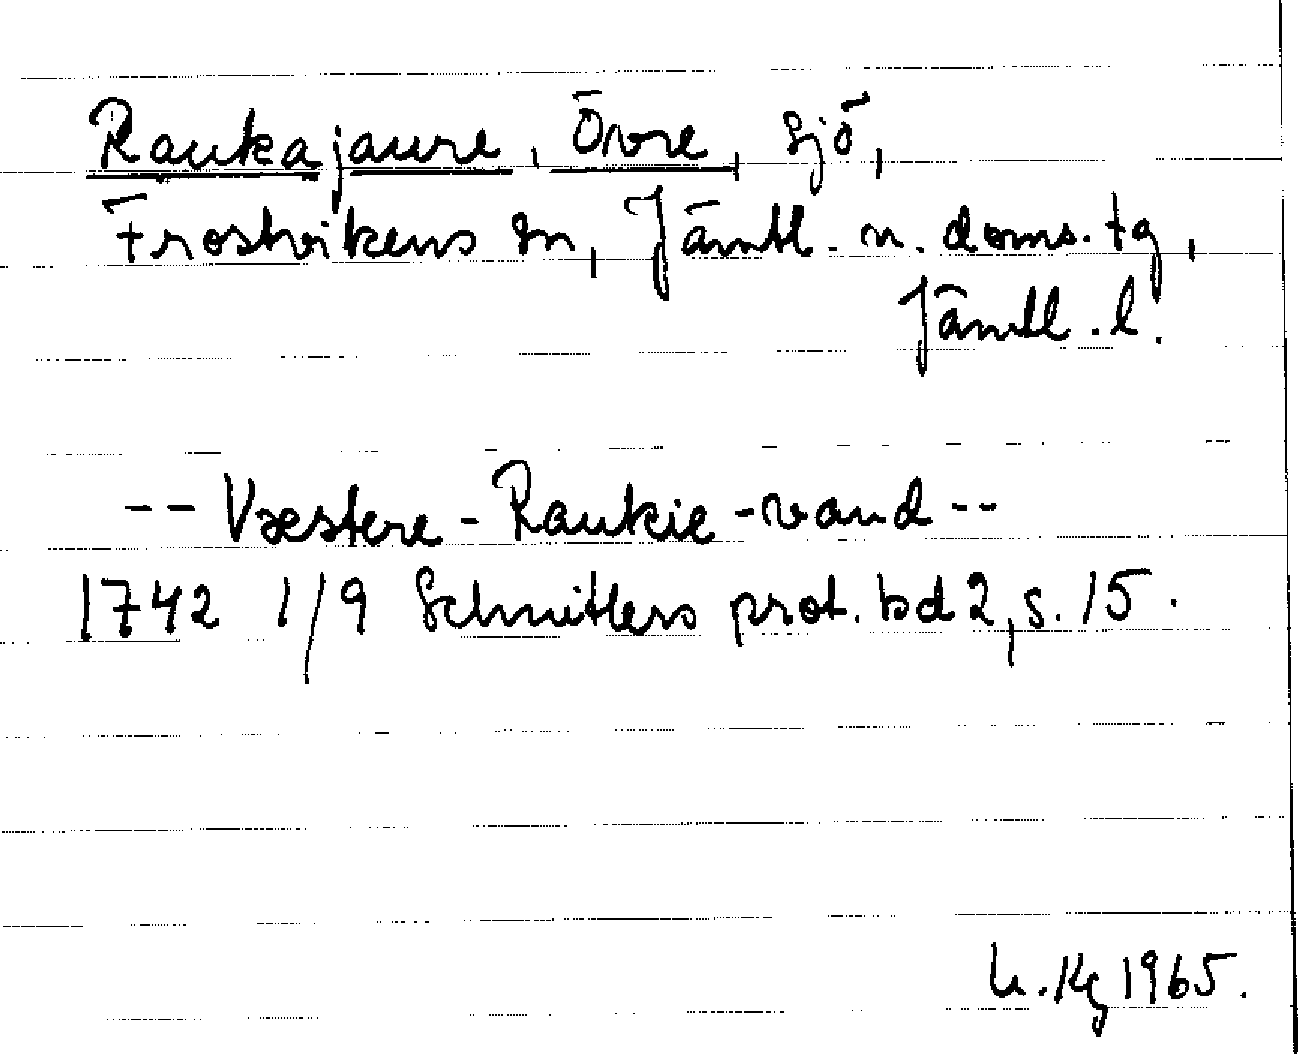 Raukajaure, Övre, sjö,
Frostvikens sn, Jämtl. n. doms. tg,
Jämtl. l.
-- Væstere-Raukie-vand --
1742 1/9 Schnitlers prot. bd 2, s. 15.
1965.